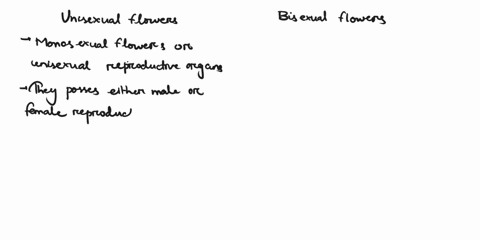 Unisexual flowers
Bisexual flowers
→ Monosexual flowers or
unisexual reproductive organs
→ They posses either male or
female reproduc